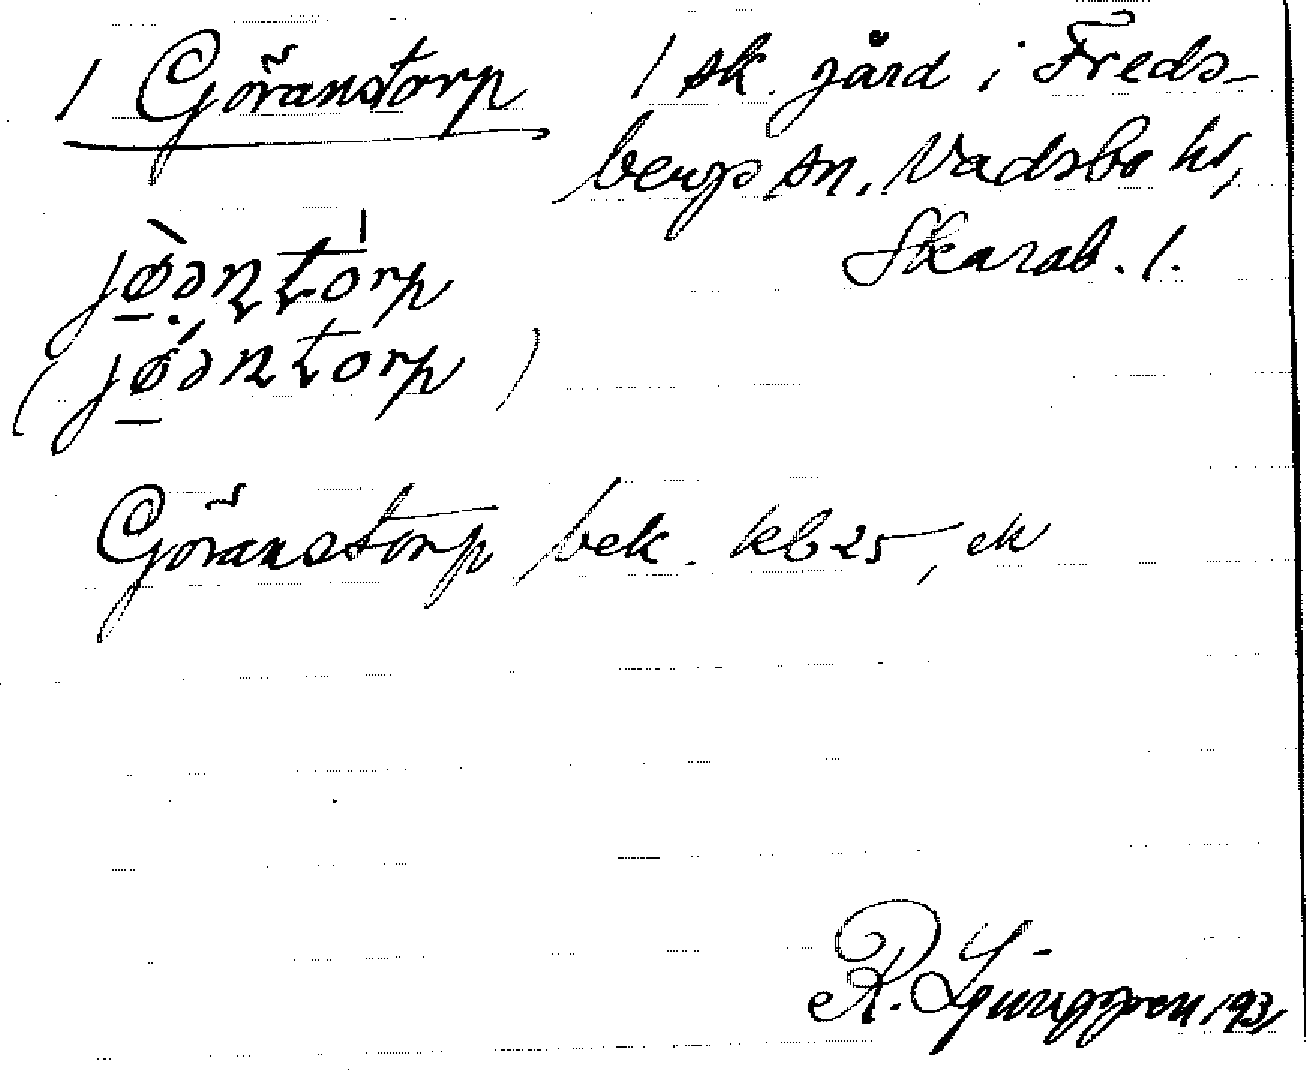 1 Göranstorp
1 sk. gård i Freds-
bergs sn, Vadsbo hd,
Skarab. l.
jø̀əntòrp
(jǿəntorp)
Göranstorp bek. kb 25, ek
R. Ljunggren 193